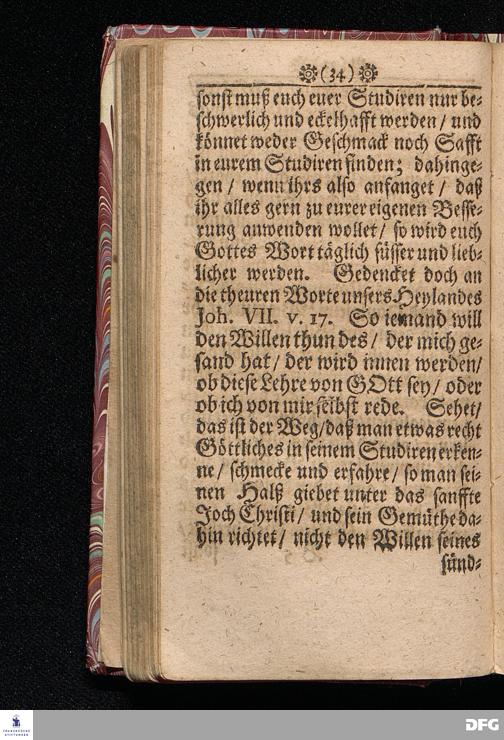 (34)
sonst muß euch euer Studiren nur be-
schwerlich und eckelhafft werden / und
könnet weder Geschmack noch Safft
in eurem Studiren finden; dahinge-
gen / wenn ihrs also anfanget / daß
ihr alles gern zu eurer eigenen Besse-
rung anwenden wollet / so wird euch
Gottes Wort täglich süsser und lieb-
licher werden. Gedencket doch an
die theuren Worte unsers Heylandes
Joh. VII. v. 17. So iemand will
den Willen thun des / der mich ge-
sand hat / der wird innen werden /
ob diese Lehre von GOtt sey / oder
ob ich von mir selbst rede. Sehet /
das ist der Weg / daß man etwas recht
Göttliches in seinem Studiren erken-
ne / schmecke und erfahre / so man sei-
nen Halß giebet unter das sanffte
Joch Christi / und sein Gemüthe da-
hin richtet / nicht den Willen seines
sünd-
FRANCKESCHE
STIFTUNGEN
DFG